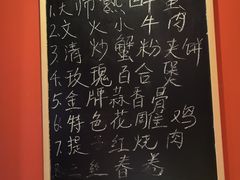 1.大师熟醉蛋
2.文火小牛肉
3.清炒蟹粉夹饼
4.玫瑰百合煲
5.金牌蒜香骨
6.特色花雕鸡
7.提 红烧肉
三丝春卷